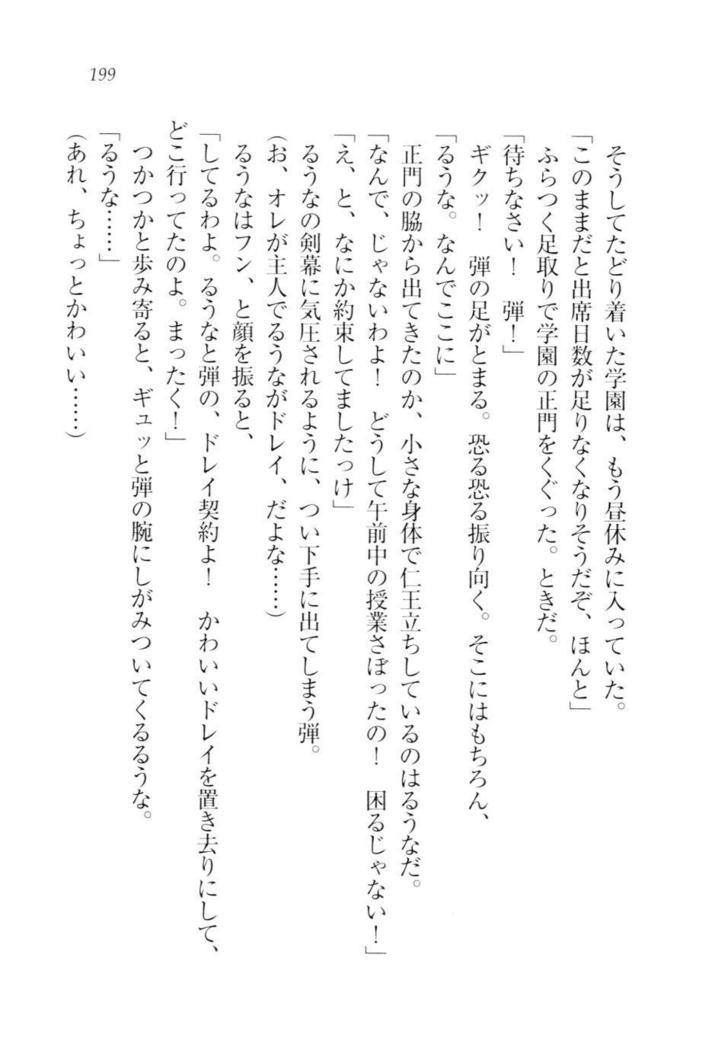 199
そうしてたどり着いた学園は、もう昼休みに入っていた。
「このままだと出席日数が足りなくなりそうだぞ、ほんと」
ふらつく足取りで学園の正門をくぐった。ときだ。
「待ちなさい！　弾！」
ギクッ！　弾の足がとまる。恐る恐る振り向く。そこにはもちろん、
「るうな。なんでここに」
正門の脇から出てきたのか、小さな身体で仁王立ちしているのはるうなだ。
「なんで、じゃないわよ！　どうして午前中の授業さぼったの！　困るじゃない！」
「え、と、なにか約束してましたっけ」
るうなの剣幕に気圧されるように、つい下手に出てしまう弾。
（お、オレが主人でるうながドレイ、だよな……）
るうなはフン、と顔を振ると、
「してるわよ。るうなと弾の、ドレイ契約よ！　かわいいドレイを置き去りにして、
どこ行ってたのよ。まったく！」
つかつかと歩み寄ると、ギュッと弾の腕にしがみついてくるるうな。
「るうな……」
（あれ、ちょっとかわいい……）